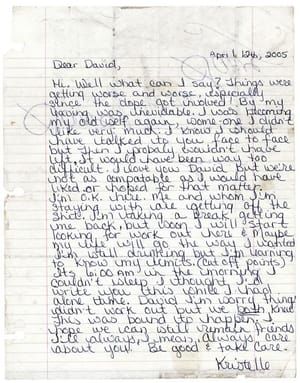 April 12th, 2005
Dear David,
Hi. Well what can I say? Things were
getting worse and worse, especially
since the dope got involved. By my
leaving was unavoidable. I was becoming
my old self again, some one I didn't
like very much. I know I should
have talked to you face to face
but then I probably wouldn't have
left. It would have been way too
difficult. I love you David but we're
not as compatable as I would have
liked or hoped for that matter.
I'm O.K. here. Me and whom I'm
staying with are getting off the
shit. I'm taking a break, getting
me back, but soon I will start
looking for work out here & maybe
my life will go the way I wanted
I'm still drinking but I'm learning
to know my limits (cut off points)
Its 6:00 AM in the morning I
couldn't sleep I thought I'd
write you this while I had
alone time. David I'm sorry things
didn't work out but we both knew
this was bound to happen. I
hope we can still remain friends
I'll always, I mean, always care
about you. Be good & take care.
Kristelle